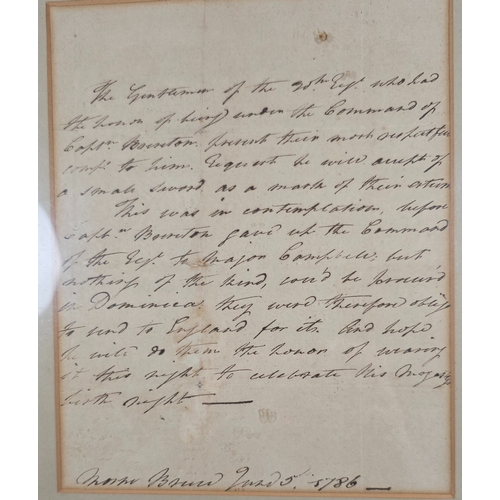 The Gentlemen of the 30th Regt. who had
the honor of being under the Command of
Captn Brereton present their most respectfull
compts to him. Request he will accept of
a small sword, as a mark of their esteem
This was in contemplation, before
Captn Brereton gave up the Command
of the Regt. to Major Campbell; but
nothing of the kind, cou'd be procur'd
in Dominica; they were therefore oblig'd
to send to England for it. And hope
he will do them the honor of wearing
it this night to celebrate His Majesty's
birth night —
Morne Bruce June 5. 1786 —